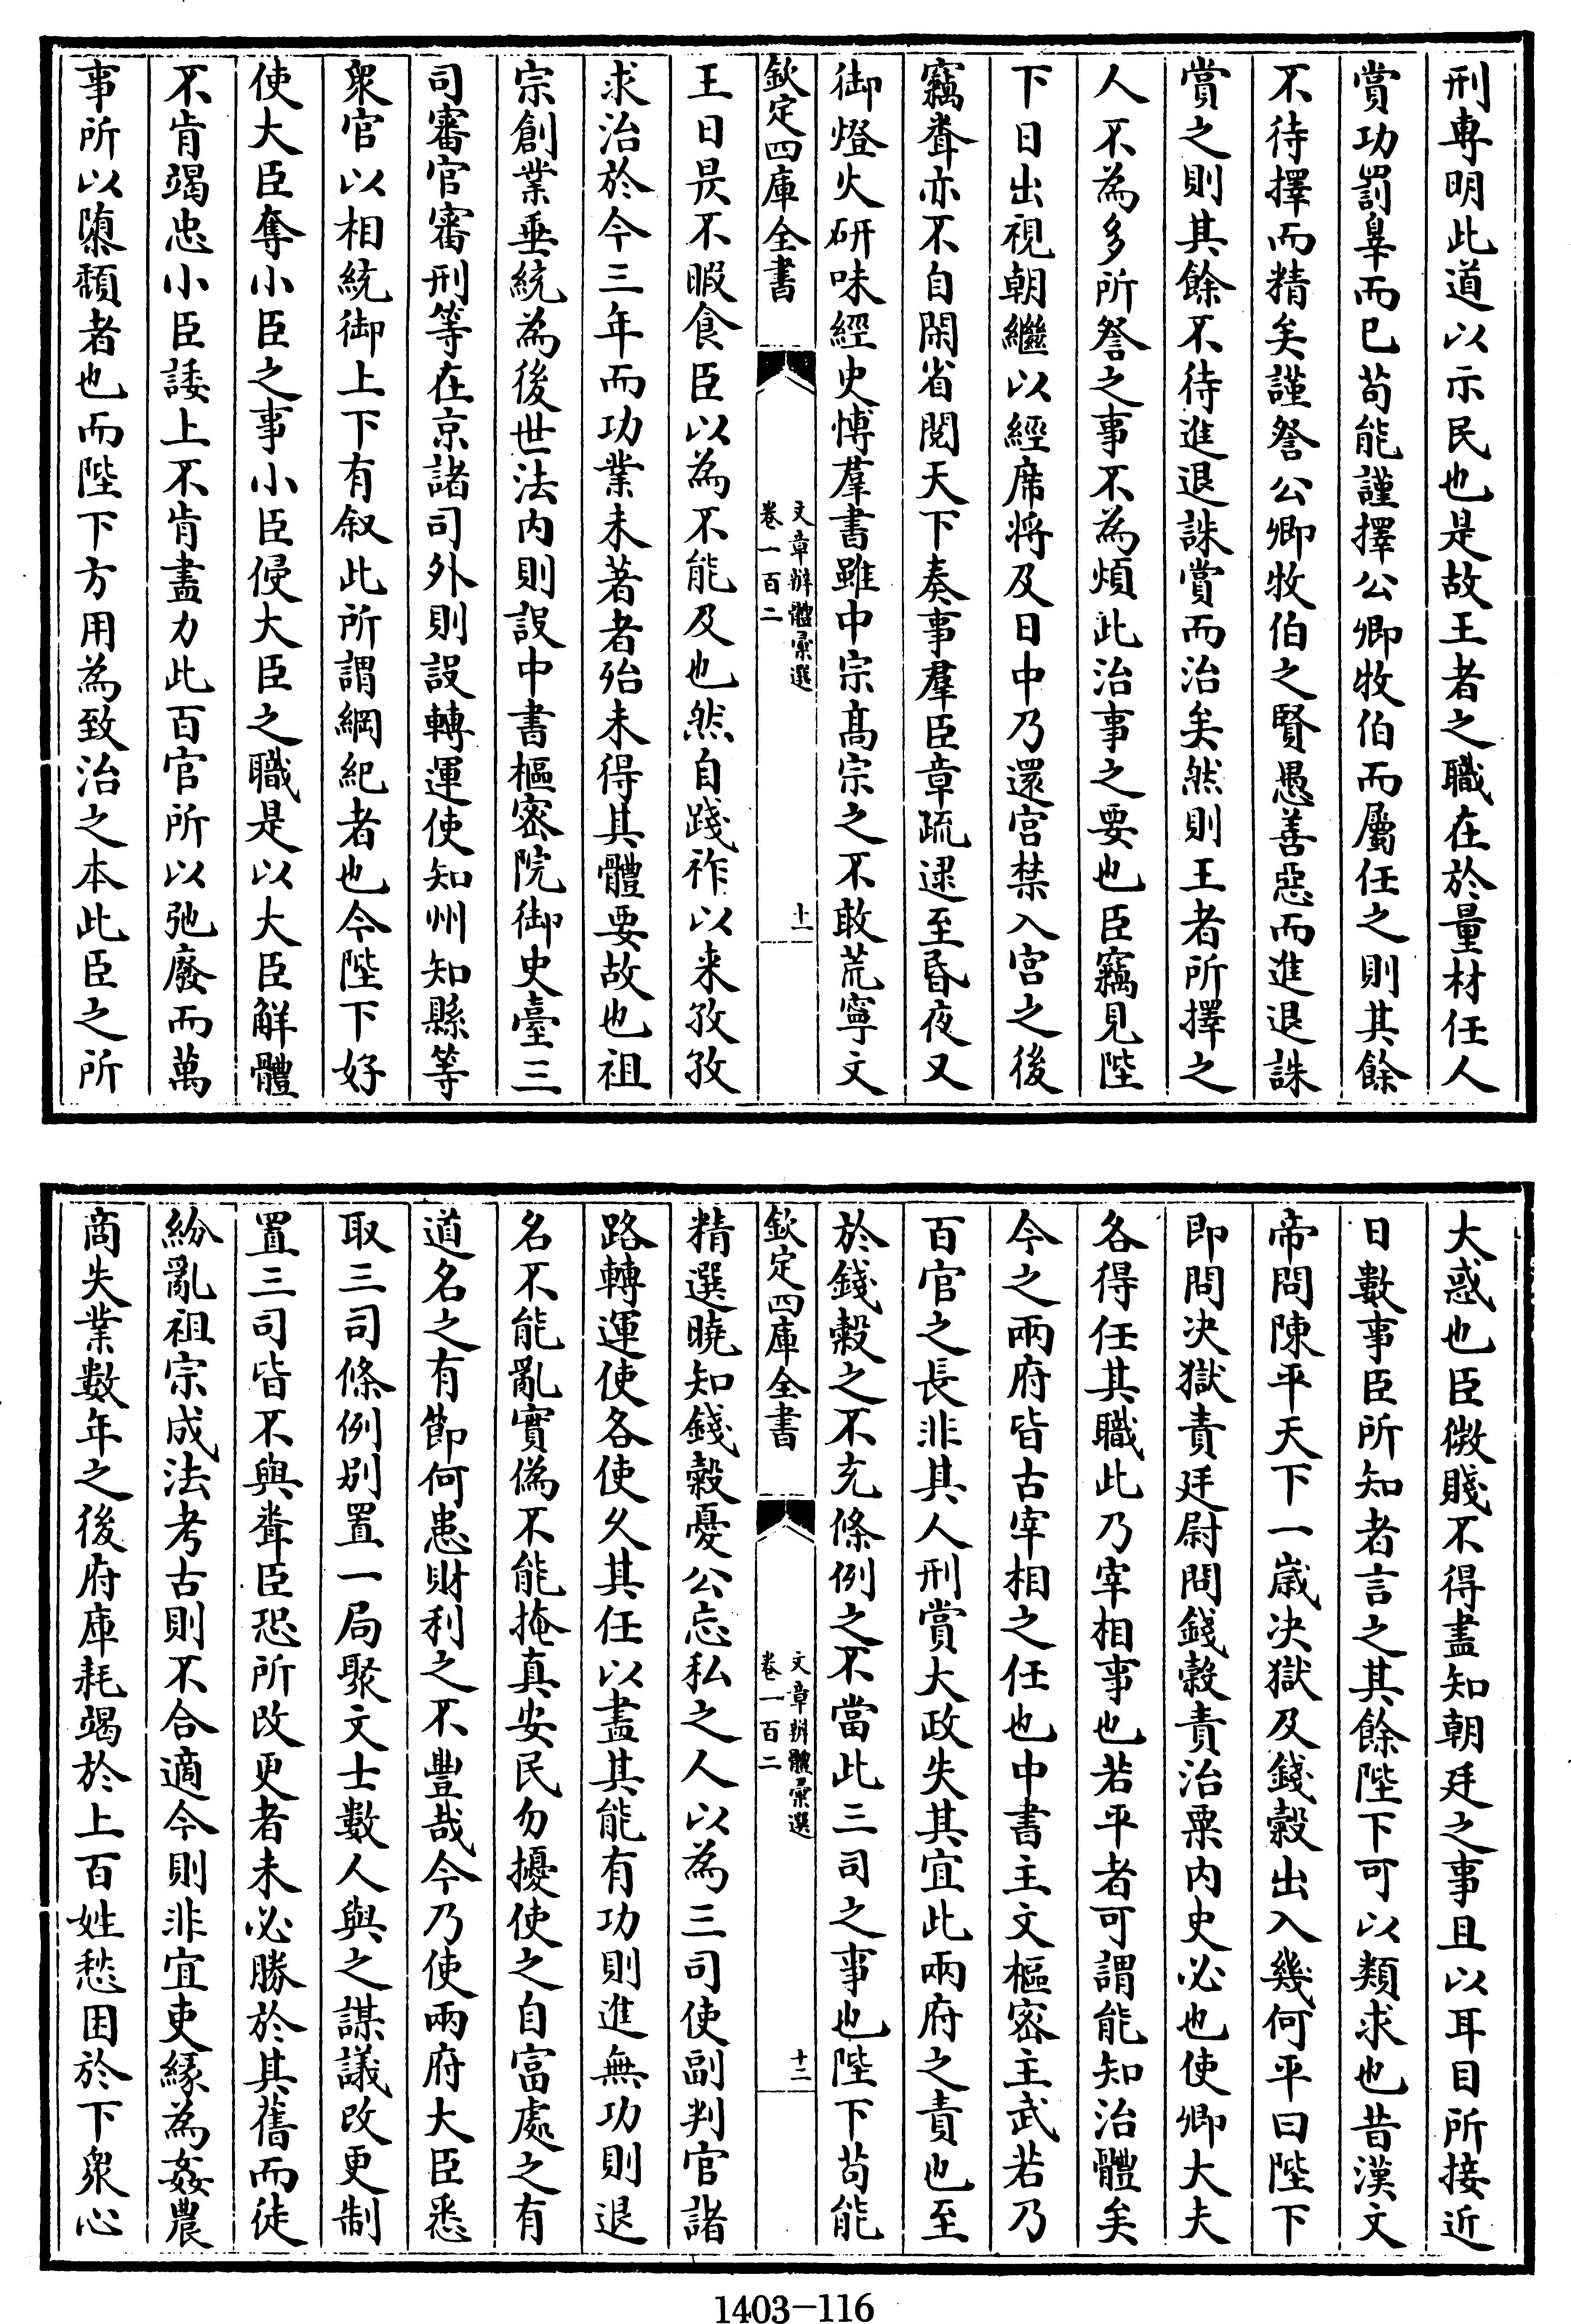 刑専明此道以示民也是故王者之職在於量材任人
賞功罰辠而已苟能謹擇公卿牧伯而屬任之則其餘
不待擇而精矣謹詧公卿牧伯之賢愚善惡而進退誅
賞之則其餘不待進退誅賞而治矣然則王者所擇之
人不為多所詧之事不為煩此治事之要也臣竊見陛
下日出視朝繼以經席將及日中乃還宮禁入宮之後
竊聞亦不自閑省閱天下奏事羣臣章疏逮至昏夜又
御燈火研味經史博羣書雖中宗髙宗之不敢荒寧文
欽定四庫全書
文章辨體彙選
卷一百二
十一
王日昃不暇食臣以為不能及也然自踐祚以来孜孜
求治於今三年而功業未著者殆未得其體要故也祖
宗創業垂統為後世法内則設中書樞密院御史臺三
司審官審刑等在京諸司外則設轉運使知州知縣等
衆官以相統御上下有叙此所謂綱紀者也今陛下好
使大臣奪小臣之事小臣侵大臣之職是以大臣解體
不肯竭忠小臣諉上不肯盡力此百官所以弛廢而萬
事所以隳頽者也而陛下方用為致治之本此臣之所
大惑也臣微賤不得盡知朝廷之事且以耳目所接近
日數事臣所知者言之其餘陛下可以類求也昔漢文
帝問陳平天下一嵗决獄及錢穀出入幾何平曰陛下
即問决獄責廷尉問錢穀責治粟内史必也使卿大夫
各得任其職此乃宰相事也若平者可謂能知治體矣
今之兩府皆古宰相之任也中書主文樞密主武若乃
百官之長非其人刑賞大政失其宜此兩府之責也至
於錢穀之不充條例之不當此三司之事也陛下苟能
欽定四庫全書
文章辨體彙選
卷一百二
十二
精選曉知錢穀憂公忘私之人以為三司使副判官諸
路轉運使各使久其任以盡其能有功則進無功則退
名不能亂實偽不能掩真安民勿擾使之自富處之有
道名之有節何患財利之不豐哉今乃使兩府大臣悉
取三司條例别置一局聚文士數人與之謀議改更制
置三司皆不與聞臣恐所改更者未必勝於其舊而徒
紛亂祖宗成法考古則不合適今則非宜吏緣為姦農
商失業數年之後府庫耗竭於上百姓愁困於下衆心
1403-116